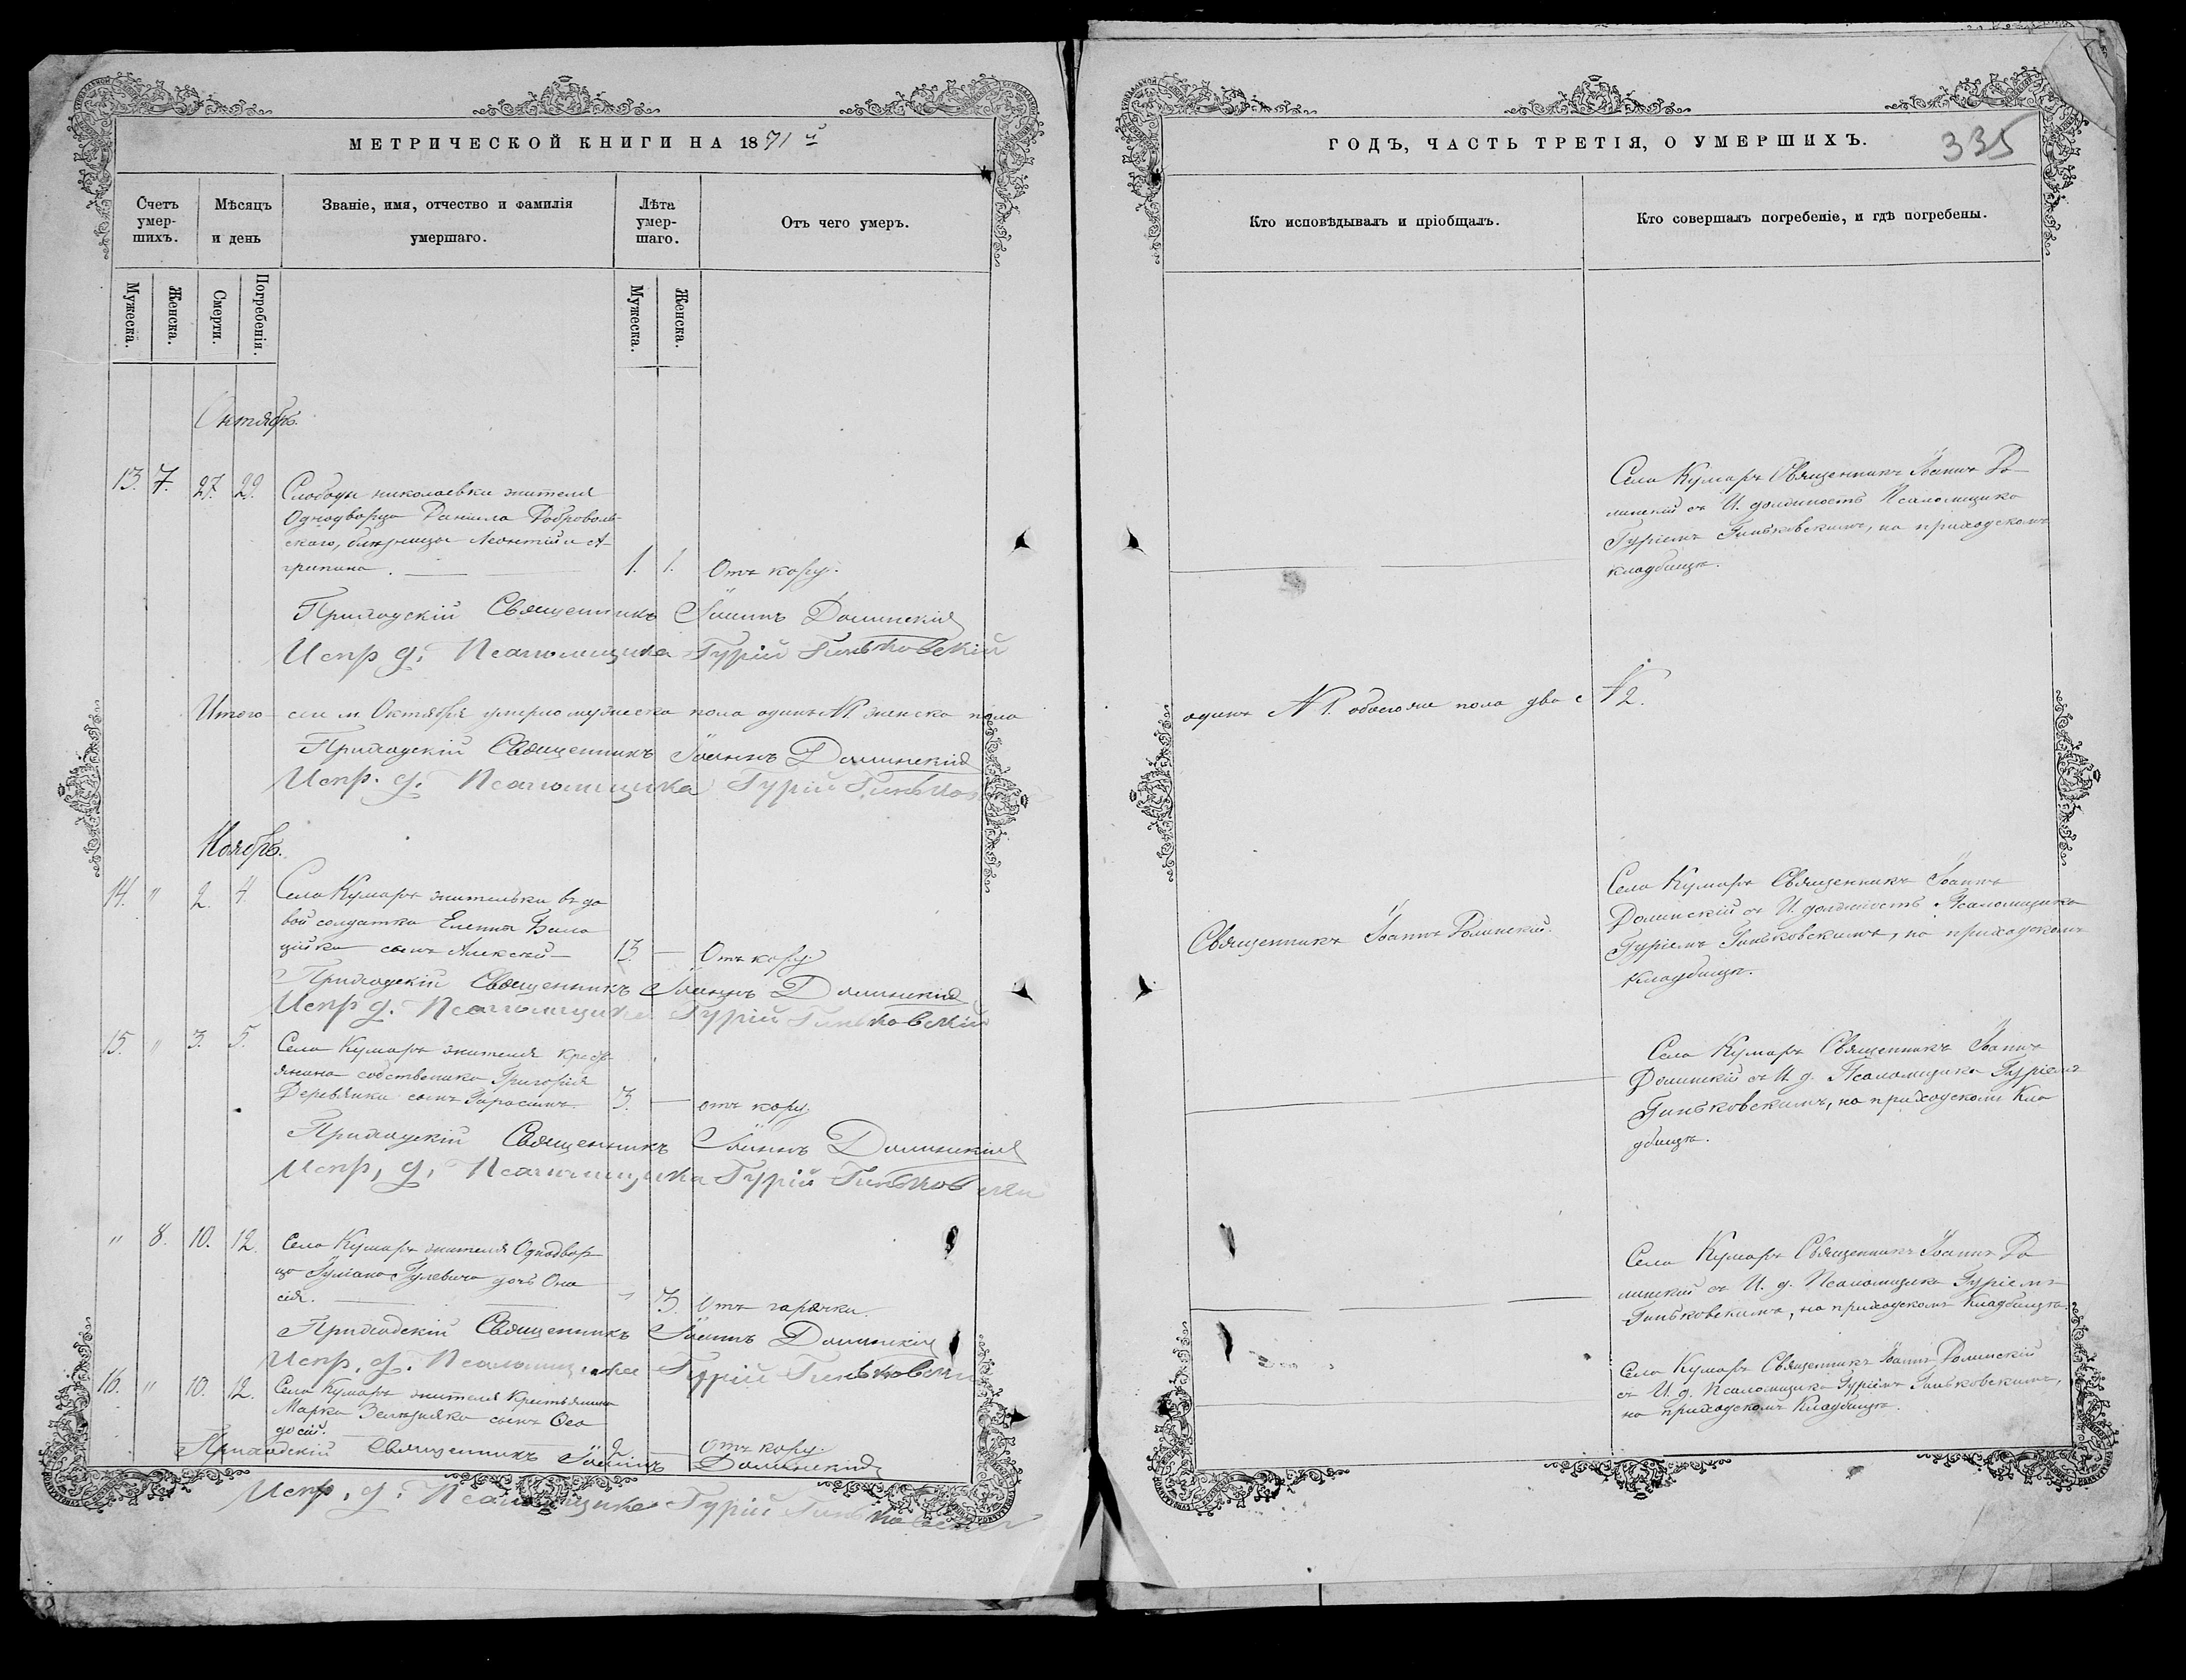 МЕТРИЧЕСКОЙ КНИГИ НА 1871й
Счетъ умер-шихъ.
Мѣсяцъ и день
Званіе, имя, отчество и фамилія умершаго.
Лѣта умер-шаго.
Отъ чего умеръ.
Мужеска.
Женска.
Смерти.
Погребенія.
Мужеска.
Женска.
Октябрь.
13. 7. 27. 29. Слободы николаевки жителя
Однодворца Данила Доброволь-
скаго, близнецы Леонтій и А-
грипина. 1. 1. Отъ кору.
Приходскій Священникъ Іоаннъ Долинскій
Испр д. Псаломщика Гурій Гиньковскій
Итого сего м. Октября умерло мужеска пола одинъ №1. женска пола
Приходскій Священникъ Іоаннъ Долинскій
Испр. д. Псаломщика Гурій Гиньков
Ноябрь.
14. " 2. 4. Села Кумаръ жительки вдо
вой солдатки Елены
сынъ Алексей 13. — Отъ кору
Приходскій Священникъ Іоаннъ Долинскій
Испр д. Псаломщика Гурій Гиньковскій
15. " 3. 5. Села Кумаръ жителя крестъ
янина собственика Григорія
Деревянки сынъ Гарасимъ. 3. — отъ кору.
Приходскій Священникъ Іоаннъ Долинскій
Испр, д, Псаломщика Гурій Гиньковскій
" 8. 10. 12. Села Кумаръ жителя Однодвор-
ца Гулевича дочъ Она
сія. " 3. Отъ гарячки.
Приходскій Священникъ Іоаннъ Долинскій
Испр. д. Псаломщика Гурій Гиньковскій
16. " 10. 12. Села Кумаръ жителя Крестьянина
Марка Зелизняка сынъ Ѳео
досій. 2 — Отъ кору.
Приходскій Священникъ Іоаннъ Долинскій
Испр. д. Псаломщика Гурій Гиньковскій
ГОДЪ, ЧАСТЬ ТРЕТІЯ, О УМЕРШИХЪ.
335
Кто исповѣдывалъ и пріобщалъ.
Кто совершалъ погребеніе, и гдѣ погребены.
Села Кумаръ Священникъ Іоаннъ До-
линскій съ И. должность Псаломщика
Гуріемъ Гиньковскимъ, на приходскомъ
кладбищѣ.
одинъ №1. обоего же пола два №2.
Священникъ Іоаннъ Долинскій.
Села Кумаръ Священникъ Іоаннъ
Долинскій съ И. должность Псаломщика
Гуріемъ Гиньковскимъ, на приходскомъ
кладбищѣ.
Села Кумаръ Священникъ Іоаннъ
Долинскій съ И. д. Псаломщика Гуріемъ
Гиньковскимъ, на приходскомъ Кла
дбищѣ.
Села Кумаръ Священникъ Іоаннъ До
линскій съ И. д. Псаломщика Гуріемъ
Гиньковскимъ, на приходскомъ Кладбищѣ.
Села Кумаръ Священникъ Іоаннъ Долинскій
съ И. д. Псаломщика Гуріемъ Гиньковскимъ,
на приходскомъ Кладбищѣ.